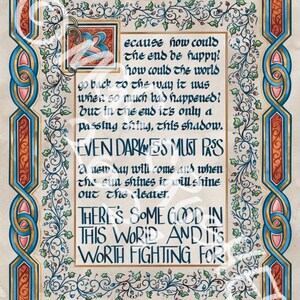 Because how could
the end be happy?
how could the world
go back to the way it was
when so much bad happened?
But in the end it's only a
passing thing, this shadow.
EVEN DARKNESS MUST PASS
A new day will come and when
the sun shines it will shine
out the clearer.
THERE'S SOME GOOD IN
THIS WORLD AND IT'S
WORTH FIGHTING FOR